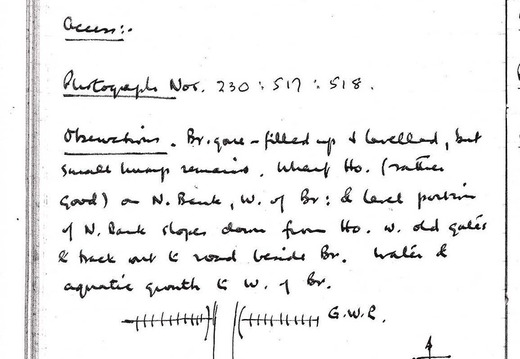 Access:-
Photograph Nos. 230 : 517 : 518.
Observations. Br. gone - filled up & levelled, but
small hump remains. Wharf Ho. (rather
good) on N. Bank, W. of Br: & level portion
of N. Bank slopes down from Ho. w. old gates
& track out to road beside Br. Water &
aquatic growth to W. of Br.
G.W.R.